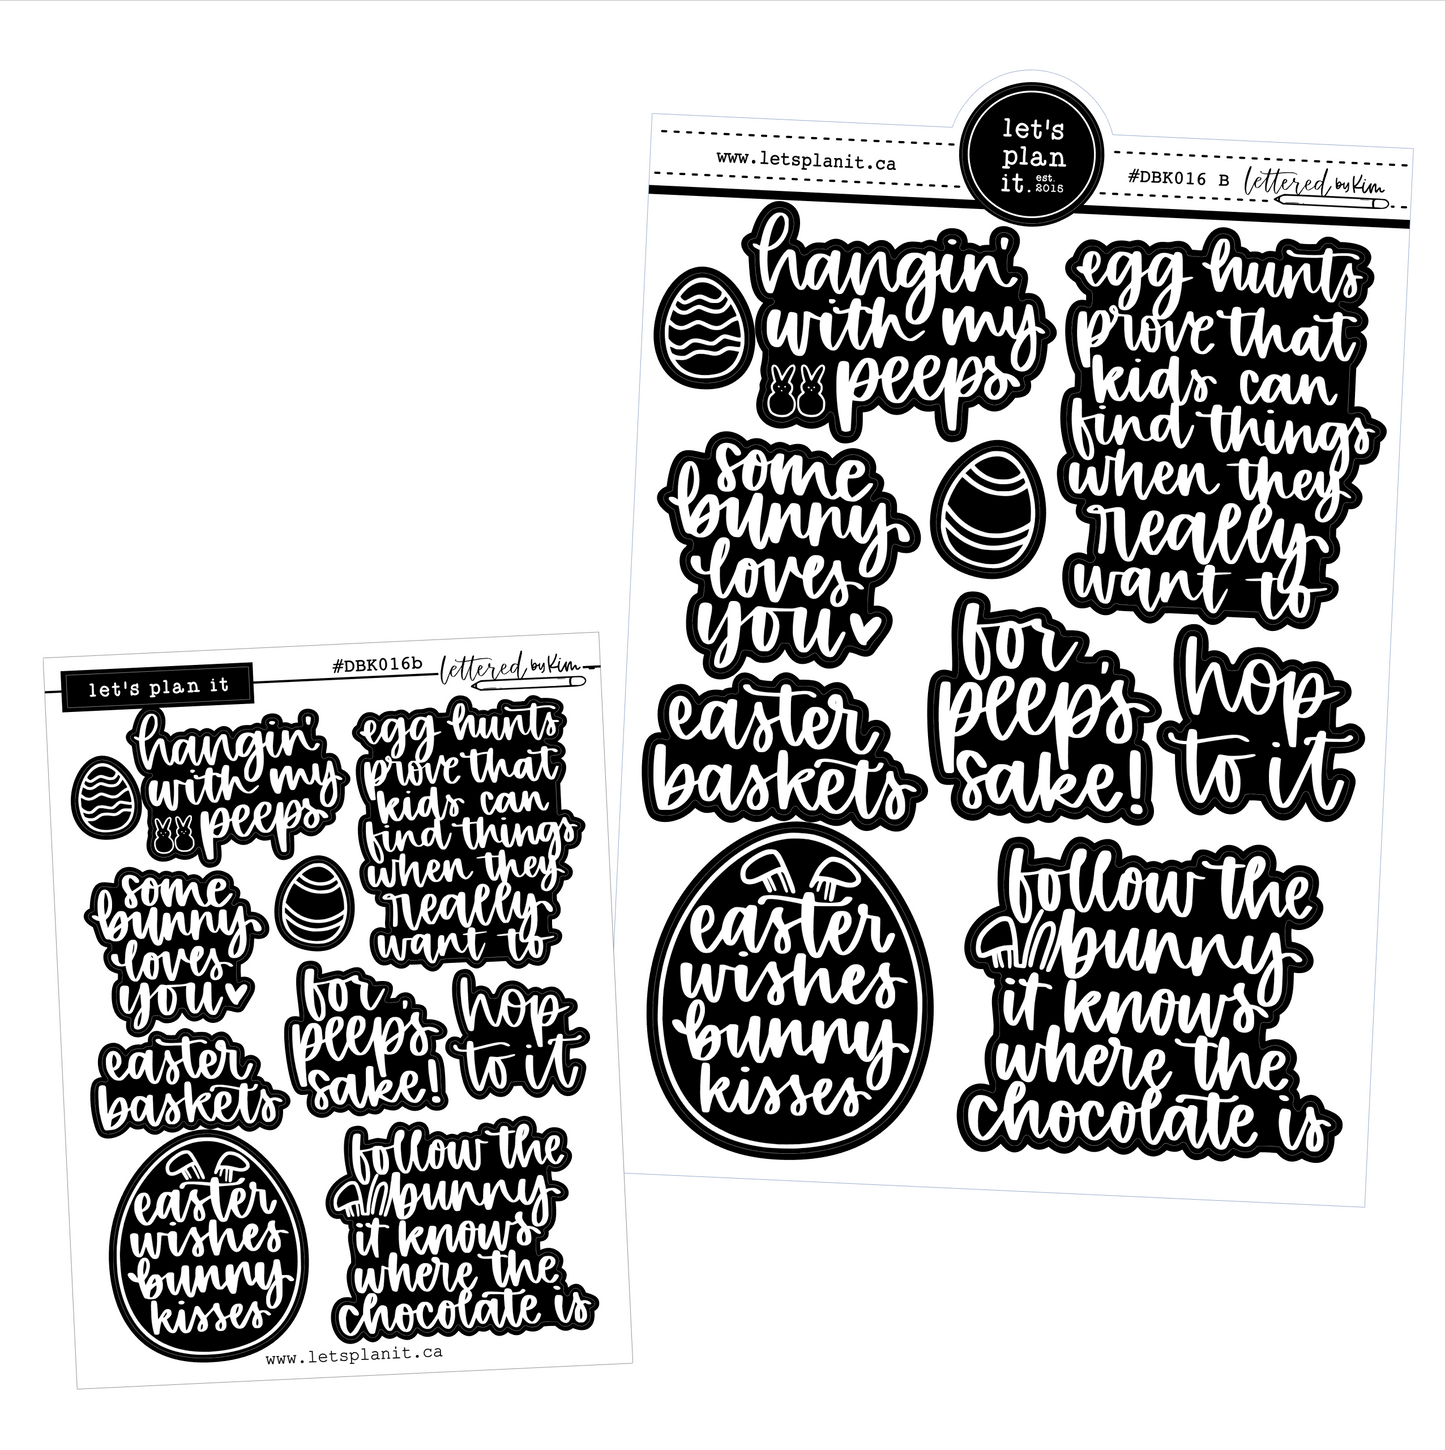 www.letsplanit.ca
let's
plan
it. est. 2015
#DBK016 B lettered by Kim
hangin'
with my
peeps
egg hunts
prove that
kids can
find things
when they
really
want to
some
bunny
loves
you
for
peep's
sake!
hop
to it
easter
baskets
easter
wishes
bunny
kisses
follow the
bunny
it knows
where the
chocolate is
let's plan it
#DBK016b lettered by Kim
hangin'
with my
peeps
egg hunts
prove that
kids can
find things
when they
really
want to
some
bunny
loves
you
for
peep's
sake!
hop
to it
easter
baskets
easter
wishes
bunny
kisses
follow the
bunny
it knows
where the
chocolate is
www.letsplanit.ca